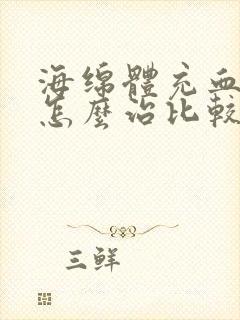 海绵體充血
怎麼治比較
三鲜